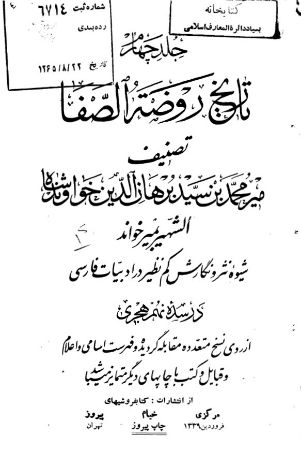 کتابخانه
بنیاد دائرة المعارف اسلامی
شماره ثبت ۶۷۱۴
رده بندی
تاریخ ۱۳۶۵/۸/۲۲
جلد چهارم
تاریخ روضة الصفا
تصنیف
میر محمد بن سید برهان الدین خواوند شاه
الشهیر بمیر خواند
شیوهٔ نثر و نگارش کم نظیر در ادبیات فارسی
در سدهٔ نهم هجری
از روی نسخ متعدده مقابله گردیده و فهرست اسامی و اعلام
و قبایل و کتب با چاپهای دیگر متمایز میباشد
از انتشارات : کتابفروشیهای
مرکزی خیام پیروز
فروردین ۱۳۳۹ چاپ پیروز تهران